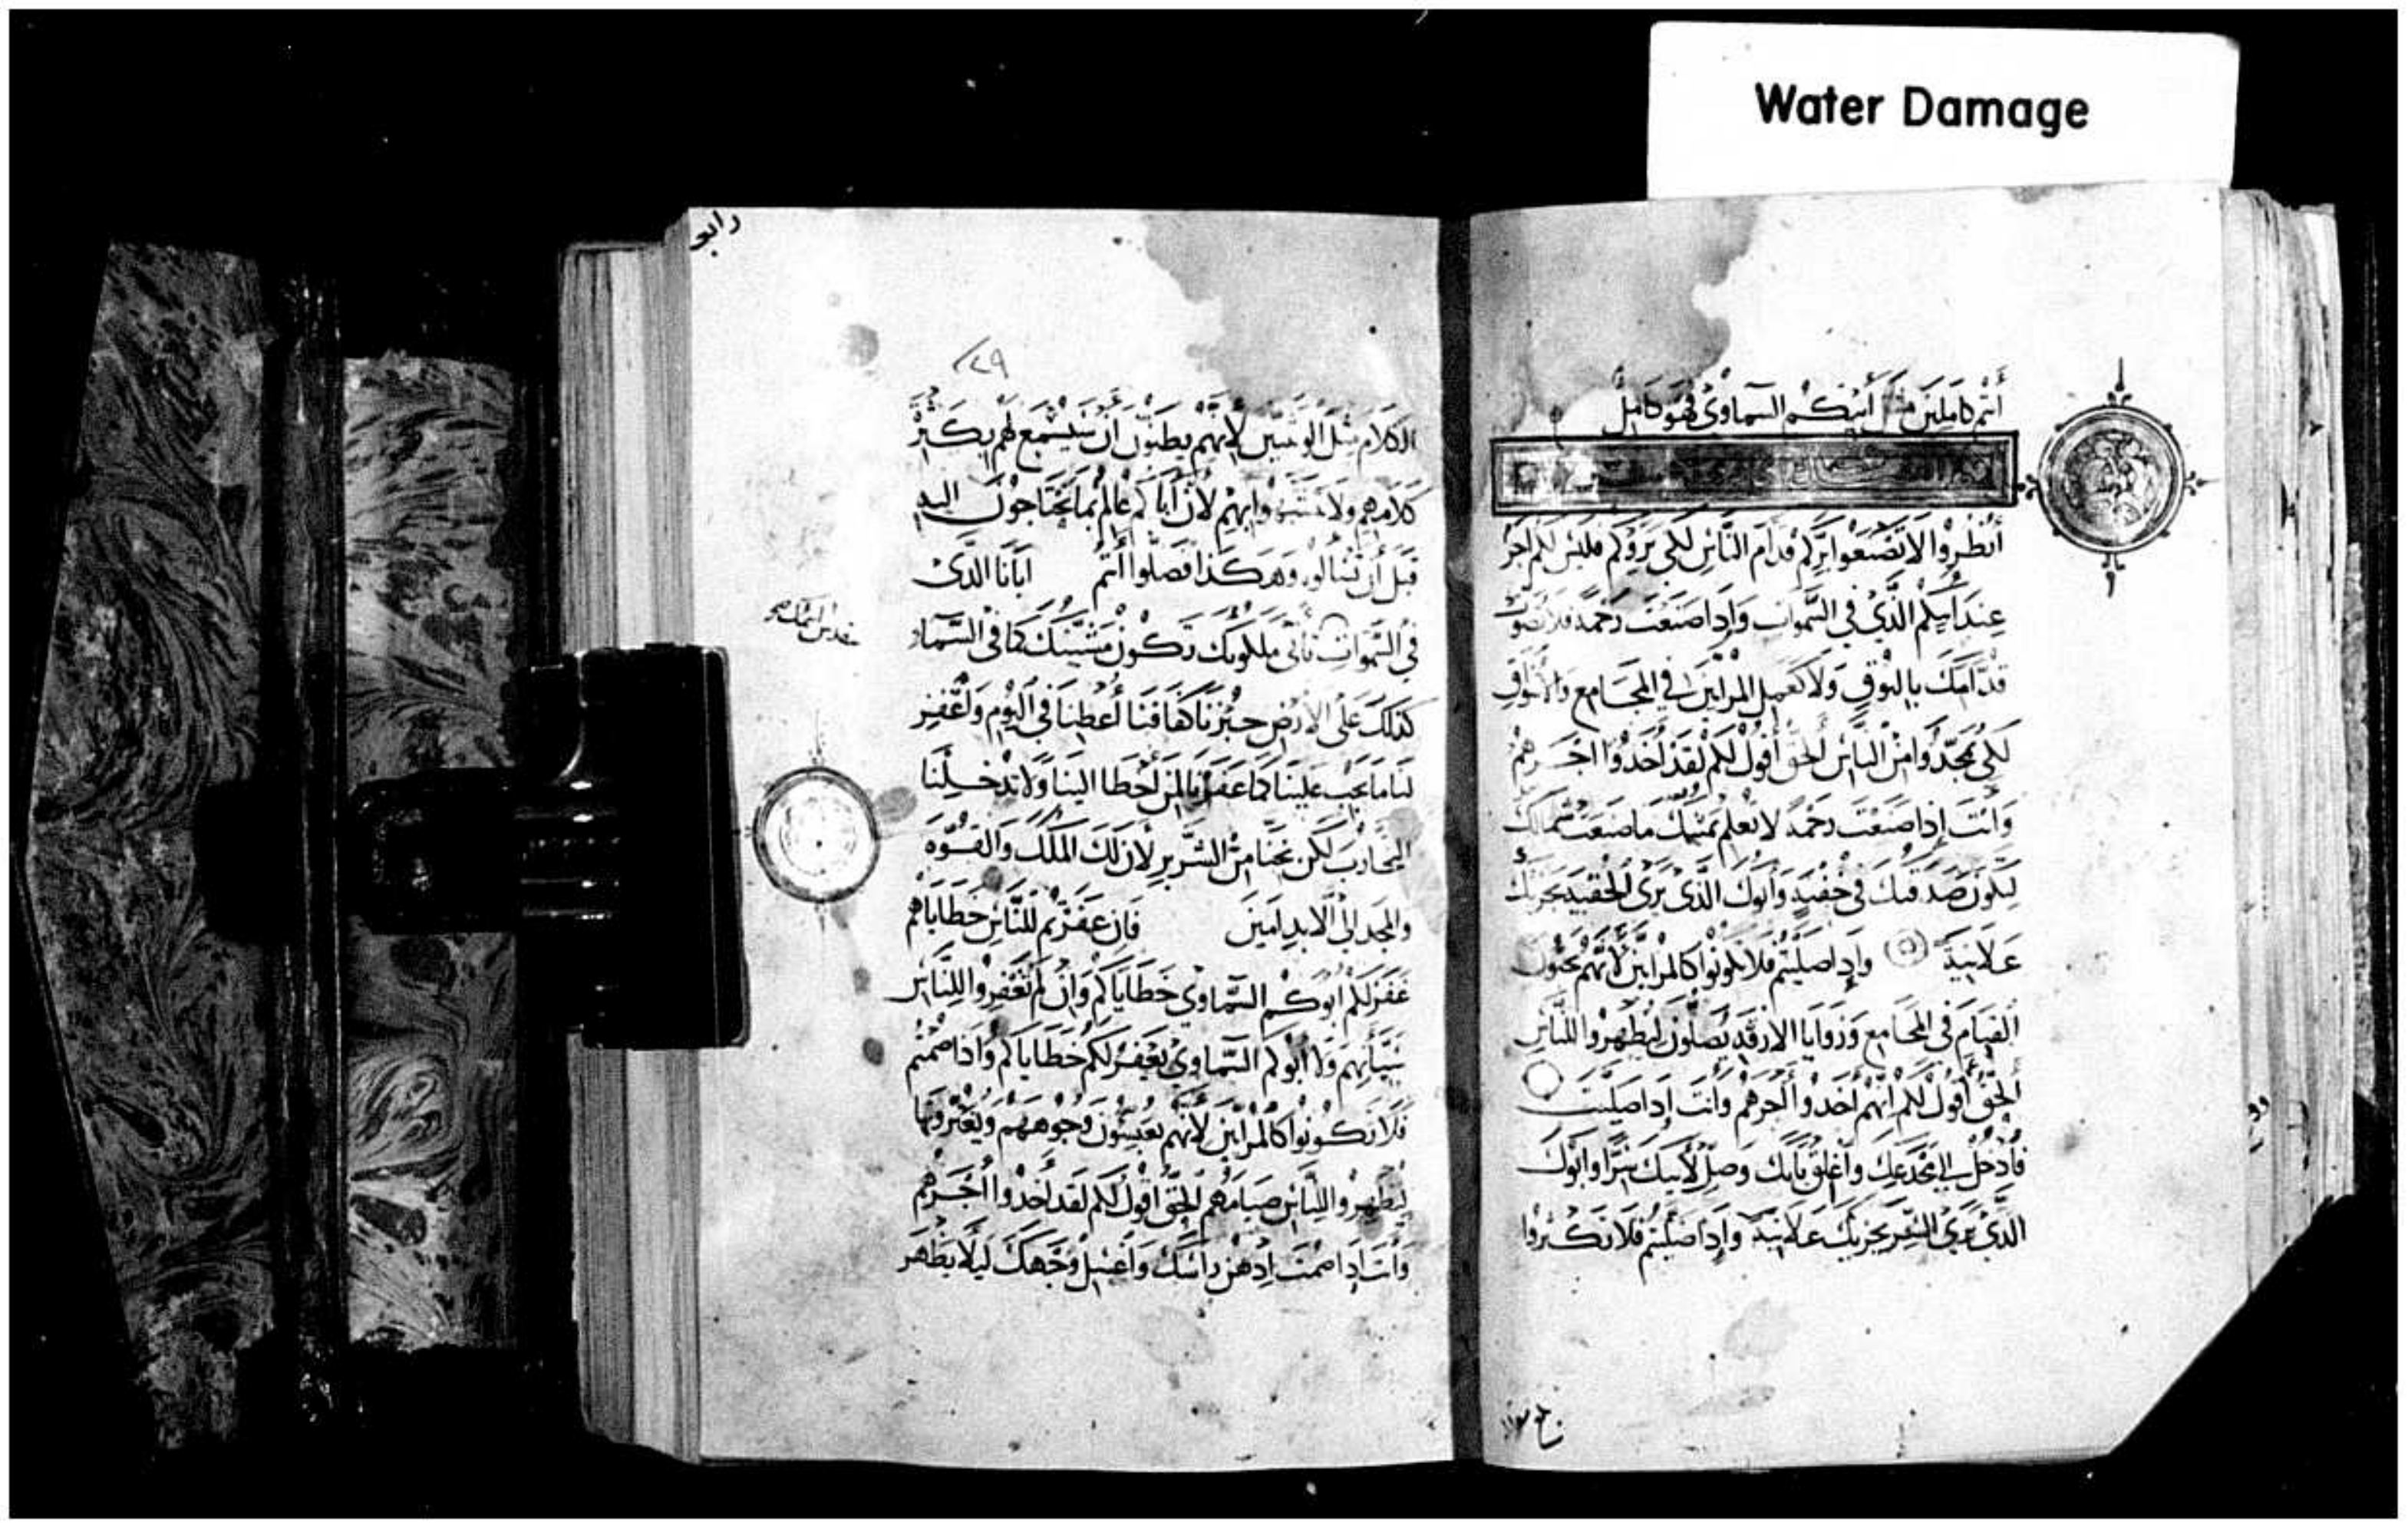 Water Damage
أنتم كاملين مثل أبيكم السماوي فهو كامل
أنظروا لا تصنعوا بركم قدام الناس لكي يروكم فليس لكم اجر
عند ابيكم الذي في السموات وإذا صنعت رحمة فلا تصوت
قدامك بالبوق ولا كعمل المرايين في المجامع والاسواق
لكي يمجدوا من الناس الحق أقول لكم لقد أخذوا اجرهم
وانت إذا صنعت رحمة لا تعلم يمينك ما صنعت شمالك
لتكون صدقتك في خفية وأبوك الذي يرى الخفية يجزيك
علانية وإذا صليتم فلا تكونوا كالمرايين لأنهم يحبون
القيام في المجامع وزوايا الازقة يصلون ليظهروا للناس
الحق أقول لكم انهم أخذوا أجرهم وأنت إذا صليت
فادخل إلى مخدعك وأغلق بابك وصل لأبيك سرا وابوك
الذي يرى السر يجزيك علانية وإذا صليتم فلا تكثروا
رابع
٤٩
الكلام مثل الوثنيين لانهم يظنون أن سيسمع لهم بكثرة
كلامهم ولا تتشبهوا بهم لأن أباكم عالم بما تحتاجون اليه
قبل أن تسألوه وهكذا فصلوا أنتم ابانا الذي
في السموات تأتي ملكوتك تكون مشيتك كما في السماء
كذلك على الارض خبزنا كفافنا أعطينا في اليوم واغفر
لنا ما يجب علينا كما غفرنا لمن أخطا الينا ولا تدخلنا
التجارب لكن نجنا من الشرير لأن لك الملك والقوة
والمجد إلى الابد امين فان غفرتم للناس خطاياهم
غفر لكم أبوكم السماوي خطاياكم وان لم تغفروا للناس
سيأتهم ولا أبوكم السماوي يغفر لكم خطاياكم وإذا صمتم
فلا تكونوا كالمرايين لأنهم يعبسون وجوههم ويغيرونها
ليظهروا للناس صيامهم الحق اقول لكم لقد أخذوا أجرهم
وأنت إذا صمت إدهن رأسك واغسل وجهك ليلا يظهر